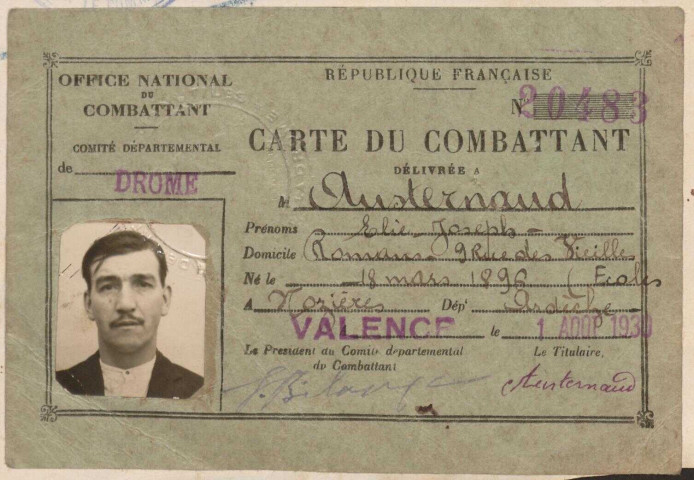 OFFICE NATIONAL
DU
COMBATTANT
COMITÉ DÉPARTEMENTAL
de DROME
RÉPUBLIQUE FRANÇAISE
N° 20483
CARTE DU COMBATTANT
DÉLIVRÉE A
M Austernaud
Prénoms Elie Joseph
Domicile Romans 9 Rue des Vieilles
Né le 18 mars 1896 (Ecoles
A Nozières Dépt Ardèche
VALENCE le 1 AOUT 1930
Le Président du Comité départemental
du Combattant
Le Titulaire,
Austernaud